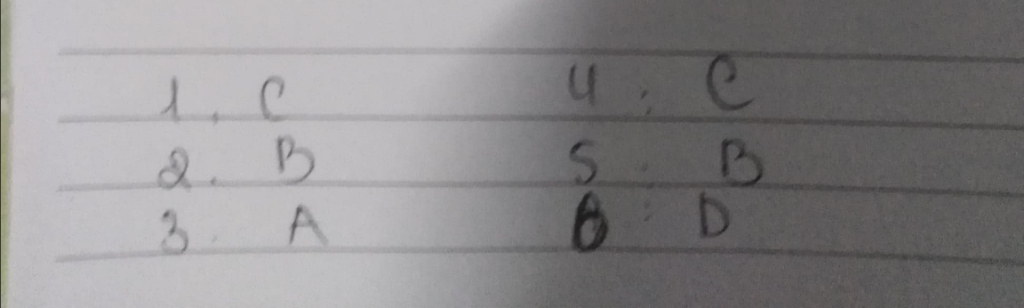 1. C 4 : C
2. B 5 : B
3. A 6 : D